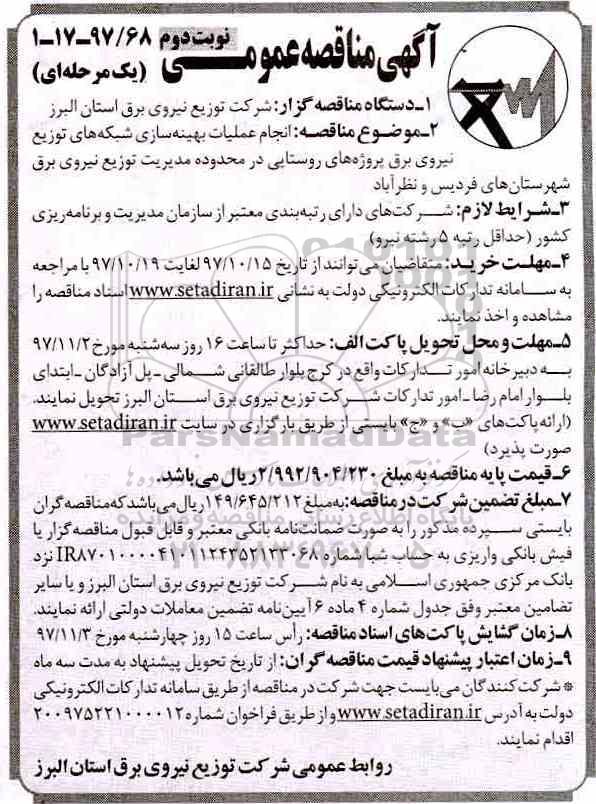 آگهی مناقصه عمومی
نوبت دوم
۱-۱۷-۹۷/۶۸
(یک مرحله‌ای)
۱-دستگاه مناقصه گزار: شرکت توزیع نیروی برق استان البرز
۲-موضوع مناقصه: انجام عملیات بهینه‌سازی شبکه‌های توزیع
نیروی برق پروژه‌های روستایی در محدوده مدیریت توزیع نیروی برق
شهرستان‌های فردیس و نظرآباد
۳-شرایط لازم: شرکت‌های دارای رتبه‌بندی معتبر از سازمان مدیریت و برنامه‌ریزی
کشور (حداقل رتبه ۵ رشته نیرو)
۴-مهلت خرید: متقاضیان می‌توانند از تاریخ ۹۷/۱۰/۱۵ لغایت ۹۷/۱۰/۱۹ با مراجعه
به سامانه تدارکات الکترونیکی دولت به نشانی www.setadiran.ir اسناد مناقصه را
مشاهده و اخذ نمایند.
۵-مهلت و محل تحویل پاکت الف: حداکثر تا ساعت ۱۶ روز سه‌شنبه مورخ ۹۷/۱۱/۲
به دبیرخانه امور تدارکات واقع در کرج بلوار طالقانی شمالی-پل آزادگان-ابتدای
بلوار امام رضا-امور تدارکات شرکت توزیع نیروی برق استان البرز تحویل نمایند.
(ارائه پاکت‌های «ب» و «ج» بایستی از طریق بارگزاری در سایت www.setadiran.ir
صورت پذیرد)
۶-قیمت پایه مناقصه به مبلغ ۲/۹۹۲/۹۰۴/۲۳۰ ریال می‌باشد.
۷-مبلغ تضمین شرکت در مناقصه: به مبلغ ۱۴۹/۶۴۵/۲۱۲ ریال می‌باشد که مناقصه گران
بایستی سپرده مذکور را به صورت ضمانت‌نامه بانکی معتبر و قابل قبول مناقصه گزار یا
فیش بانکی واریزی به حساب شبا شماره IR۸۷۰۱۰۰۰۰۴۱۰۱۱۲۴۳۵۲۱۲۳۰۶۸ نزد
بانک مرکزی جمهوری اسلامی به نام شرکت توزیع نیروی برق استان البرز و یا سایر
تضامین معتبر وفق جدول شماره ۴ ماده ۶ آیین‌نامه تضمین معاملات دولتی ارائه نمایند.
۸-زمان گشایش پاکت‌های اسناد مناقصه: رأس ساعت ۱۵ روز چهارشنبه مورخ ۹۷/۱۱/۳
۹-زمان اعتبار پیشنهاد قیمت مناقصه گران: از تاریخ تحویل پیشنهاد به مدت سه ماه
* شرکت‌کنندگان می‌بایست جهت شرکت در مناقصه از طریق سامانه تدارکات الکترونیکی
دولت به آدرس www.setadiran.ir و از طریق فراخوان شماره ۲۰۰۹۷۵۲۲۱۰۰۰۰۱۲
اقدام نمایند.
روابط عمومی شرکت توزیع نیروی برق استان البرز
ParsNamadData